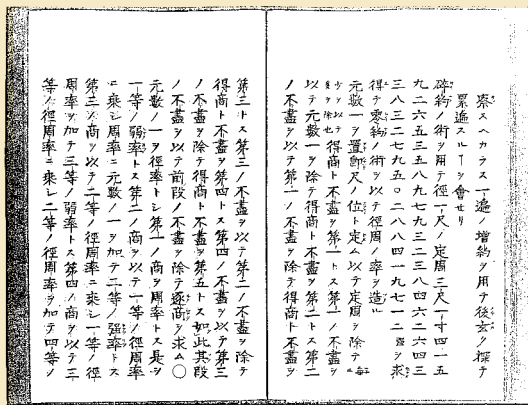 察スヘカラス一遍ノ増約ヲ用テ後玄ク探テ
累遍スルヿヲ會セリ
碎約ノ術ヲ用テ徑一尺ノ定周三尺一寸四一五
九二六五三五八九七九三二三八四六二六四三
三八三二七九五〇二八八四一九七一二強ヲ求
得テ零約ノ術ヲ以テ徑周ノ率ヲ造ル
元數一ヲ置即尺ノ位ト定ム以テ定周ヲ除テ毎
少ヲ以テ多ヲ除也得商ト不盡ヲ第一トス第一ノ不盡ヲ
以テ元數一ヲ除テ得商ト不盡ヲ第二トス第二
ノ不盡ヲ以テ第一ノ不盡ヲ除テ得商ト不盡ヲ
第三トス第三ノ不盡ヲ以テ第二ノ不盡ヲ除テ
得商ト不盡ヲ第四トス第四ノ不盡ヲ以テ第三
ノ不盡ヲ除テ得商ト不盡ヲ第五トス如此其段
ノ不盡ヲ以テ前段ノ不盡ヲ除テ逐商ヲ求ム〇
元數ノ一ヲ徑率トシ第一ノ商ヲ周率トス是ヲ
一等ノ弱率トス第二ノ商ヲ以テ一等ノ徑周率
ニ乘シ周率ニ元數ノ一ヲ加テ二等ノ強率トス
第三ノ商ヲ以テ二等ノ徑周率ニ乘シ一等ノ徑
周率ヲ加テ三等ノ弱率トス第四ノ商ヲ以テ三
等ノ徑周率ニ乘シ二等ノ徑周率ヲ加テ四等ノ